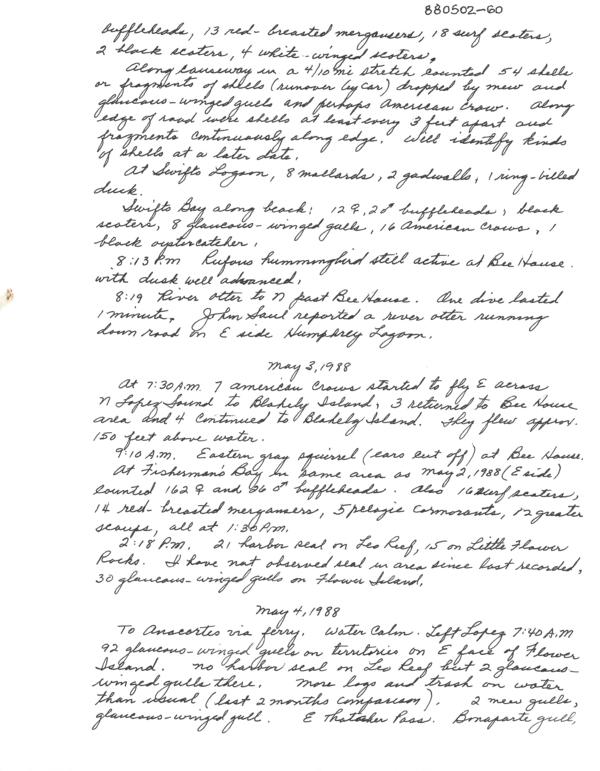 880502-60
buffleheads, 13 red-breasted mergansers, 18 surf scoters,
2 black scoters, 4 white-winged scoters.
Along causeway in a 4/10 mi stretch counted 54 shells
or fragments of shells (runover by car) dropped by mew and
glaucous-winged gulls and perhaps American crow. Along
edge of road were shells at least every 3 feet apart and
fragments continuously along edge. Will identify kinds
of shells at a later date.
At Swifts Lagoon, 8 mallards, 2 gadwalls, 1 ring-billed
duck.
Swifts Bay along beach: 12 ♀, 2 ♂ buffleheads, black
scoters, 8 glaucous-winged gulls, 16 American crows, 1
black oystercatcher.
8:13 P.m Rufous hummingbird still active at Bee House.
with dusk well advanced.
8:19 River otter to N past Bee House. One dive lasted
1 minute. John Saul reported a river otter running
down road on E side Humphrey Lagoon.
May 3, 1988
At 7:30 A.m. 7 American crows started to fly E across
N Lopez Sound to Blakely Island, 3 returned to Bee House
area and 4 continued to Blakely Island. They flew approx.
150 feet above water.
9:10 A.m. Eastern gray squirrel (ears cut off) at Bee House.
At Fisherman's Bay in same area as May 2, 1988 (E side)
counted 162 ♀ and 96 ♂ buffleheads. Also 16 surf scoters,
14 red-breasted mergansers, 5 pelagic cormorants, 12 greater
scaups, all at 1:30 P.m.
2:18 P.m. 21 harbor seal on Leo Reef, 15 on Little Flower
Rocks. I have not observed seal in area since last recorded,
30 glaucous-winged gulls on Flower Island.
May 4, 1988
To Anacortes via ferry. Water calm. Left Lopez 7:40 A.M
92 glaucous-winged gulls on territories on E face of Flower
Island. No harbor seal on Leo Reef but 2 glaucous-
winged gulls there. More logs and trash on water
than usual (last 2 months comparison). 2 mew gulls,
glaucous-winged gull. E Thatcher Pass. Bonaparte gull,